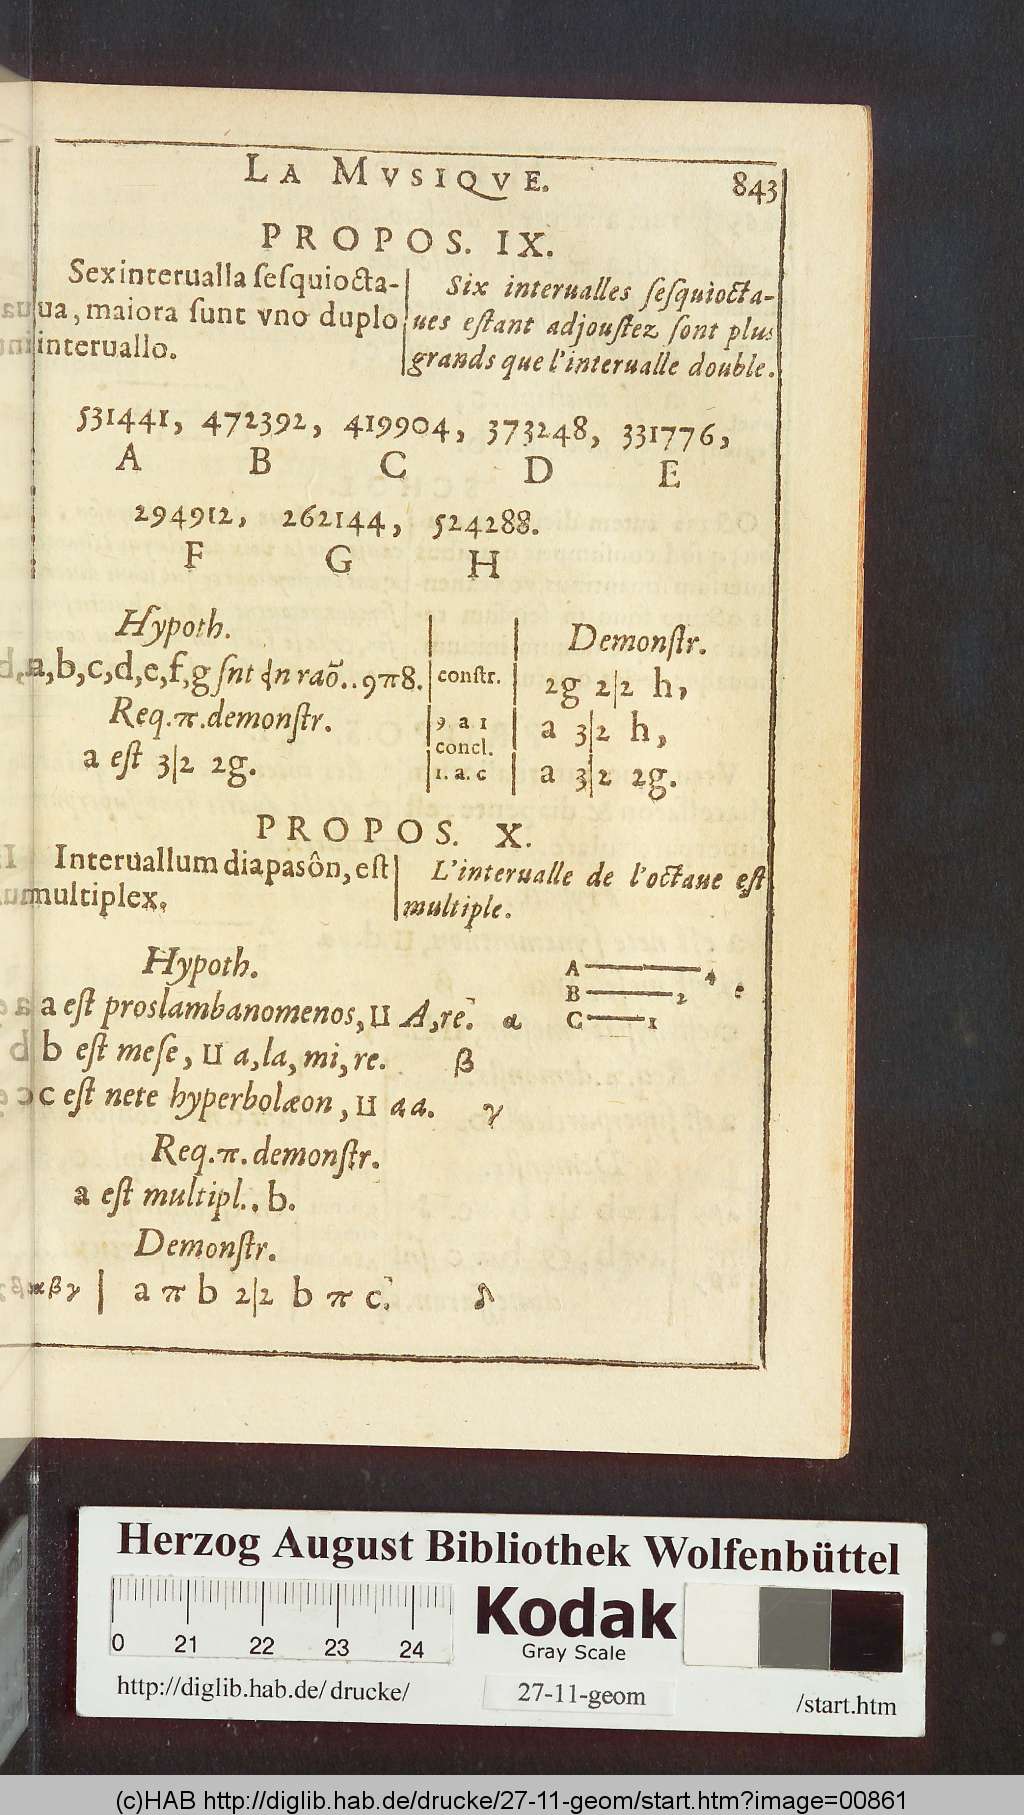 LA MVSIQVE.
843
PROPOS. IX.
Sex interualla seſquiocta-
ua, maiora ſunt vno duplo
interuallo.
Six interualles ſeſquiocta-
ues eſtant adjouſtez ſont plus
grands que l'interualle double.
531441, 472392, 419904, 373248, 331776,
A B C D E
294912, 262144, 524288.
F G H
Hypoth.
a,b,c,d,e,f,g ſnt in raõ..9π8.
Req.π.demonſtr.
a eſt 3|2 2g.
constr.
9. a 1
concl.
1. a. c
Demonſtr.
2g 2|2 h,
a 3|2 h,
a 3|2 2g.
PROPOS. X.
Interuallum diapasôn, eſt
multiplex.
L'interualle de l'octaue eſt
multiple.
Hypoth.
a eſt proslambanomenos, ⊔ A,re. α
b eſt meſe, ⊔ a,la,mi,re. β
c eſt nete hyperbolæon, ⊔ aa. γ
A 4
B 2
C 1
Req.π.demonſtr.
a eſt multipl.. b.
Demonſtr.
αβγ | a π b 2|2 b π c.
Herzog August Bibliothek Wolfenbüttel
0 21 22 23 24
Kodak
Gray Scale
http://diglib.hab.de/drucke/
27-11-geom
/start.htm
(c)HAB http://diglib.hab.de/drucke/27-11-geom/start.htm?image=00861